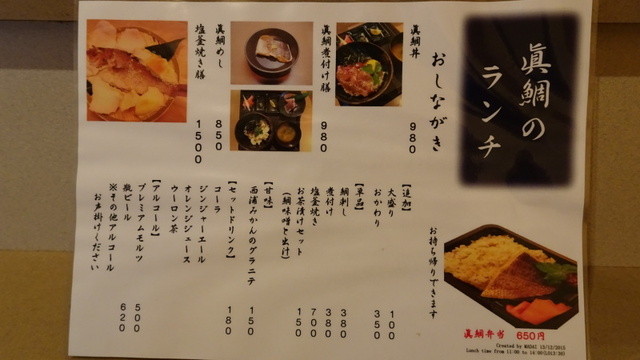 眞鯛の
ランチ
おしながき
眞鯛丼 980
眞鯛煮付け膳 980
眞鯛めし 850
塩釜焼き膳 1500
【追加】
大盛り 100
おかわり 350
【単品】
鯛刺し 380
煮付け 380
塩釜焼き 700
お茶漬けセット 150
(鯛味噌と出汁)
【甘味】
西浦みかんのグラニテ 150
【セットドリンク】 180
コーラ
ジンジャーエール
オレンジジュース
ウーロン茶
【アルコール】
プレミアムモルツ 500
瓶ビール 620
※その他アルコール
お声掛けください
お持ち帰りできます
眞鯛弁当 650円
Created by MADAI 15/12/2015
Lunch time from 11:00 to 14:00(LO13:30)